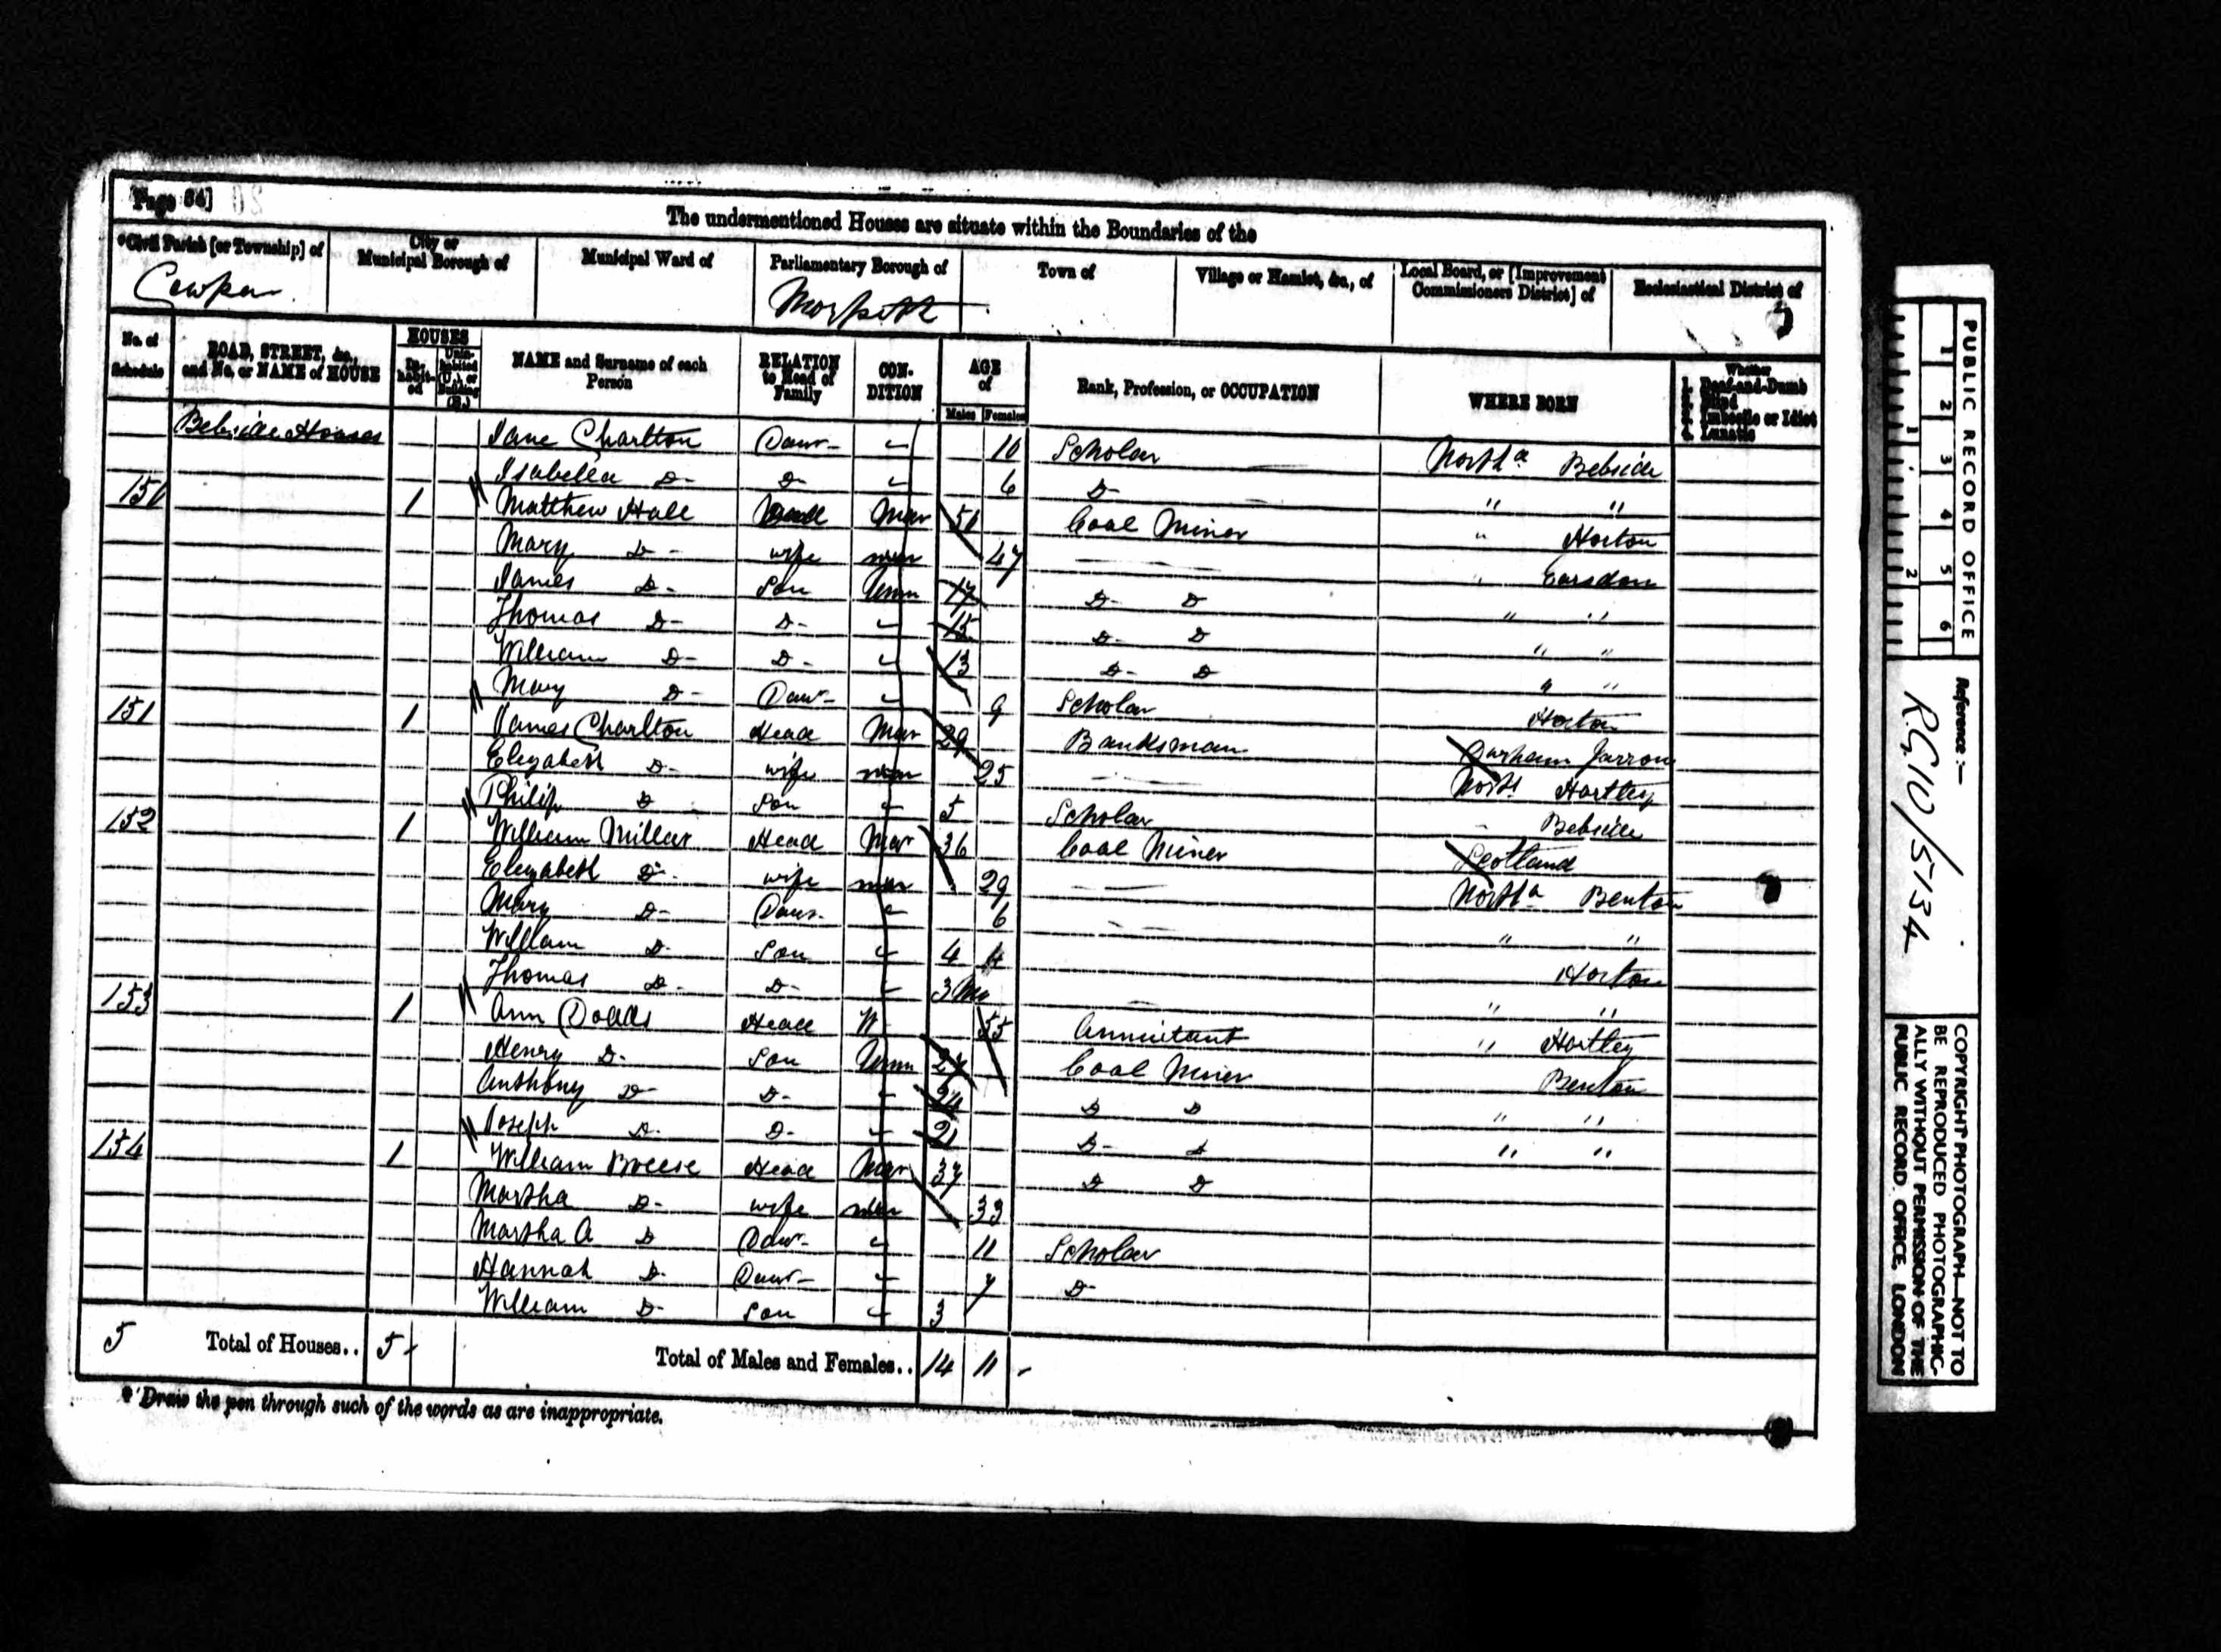 Page 34]
The undermentioned Houses are situate within the Boundaries of the
*Civil Parish [or Township] of
City or Municipal Borough of
Municipal Ward of
Parliamentary Borough of
Town of
Village or Hamlet, &c., of
Local Board, or [Improvement Commissioners District] of
Ecclesiastical District of
Cowpen
Morpeth
No. of Schedule
ROAD, STREET, &c., and No. or NAME of HOUSE
HOUSES
In-habit-ed
Unin-habited (U.), or Building (B.)
NAME and Surname of each Person
RELATION to Head of Family
CON-DITION
AGE of
Males Females
Rank, Profession, or OCCUPATION
WHERE BORN
Whether
1. Deaf-and-Dumb
2. Blind
3. Imbecile or Idiot
4. Lunatic
Bebside Houses Jane Charlton Daur 10 Scholar North'd Bebside
Isabella D- D- 6 D- " "
150 1 Matthew Hall Head Mar Coal Miner " Horton
Mary D- wife mar 47 " Earsdon
James D- Son Unm 17 D- D " "
Thomas D- D- 15 D- D " "
William D- D- 13 D- D " "
Mary D- Daur- 9 Scholar Horton
151 1 James Charlton Head Mar 29 Banksman Durham Jarrow
Elizabeth D- wife mar 25 North Hartley
Philip D Son 5 Scholar Bebside
152 1 William Millar Head Mar 36 Coal Miner Scotland
Elizabeth D- wife mar 29 North'd Benton
Mary D- Daur- 6 " "
William D- Son 4 4 Horton
Thomas D- D- 3 Mo " "
153 1 Ann Dodds Head W 55 Annuitant " Hartley
Henry D- Son Unm 27 Coal Miner Benton
Anthony D- D- 24 D D " "
Joseph D- D- 21 D- D " "
154 1 William Breese Head Mar 37 D D
Martha D- wife mar 33
Martha A D Daur- 11 Scholar
Hannah D- Daur- 7 D-
William D- Son 3
5 Total of Houses.. 5 Total of Males and Females.. 14 11
* Draw the pen through such of the words as are inappropriate.
PUBLIC RECORD OFFICE
1 2 3 4 5 6
1 2
Reference:-
RG10/5134
COPYRIGHT PHOTOGRAPH—NOT TO
BE REPRODUCED PHOTOGRAPHIC-
ALLY WITHOUT PERMISSION OF THE
PUBLIC RECORD OFFICE, LONDON